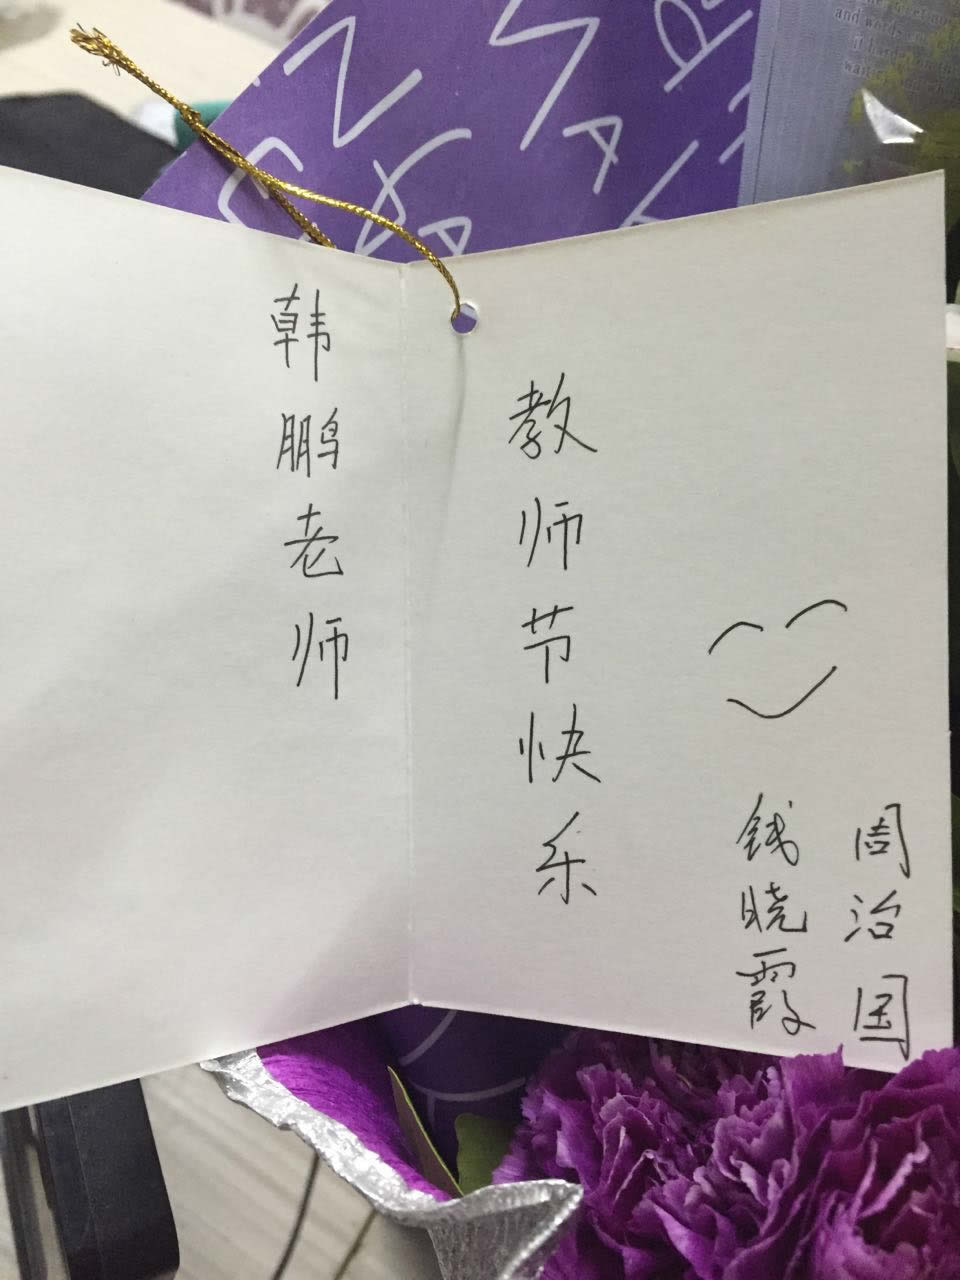 韩鹏老师
教师节快乐
钱晓霞
周治国